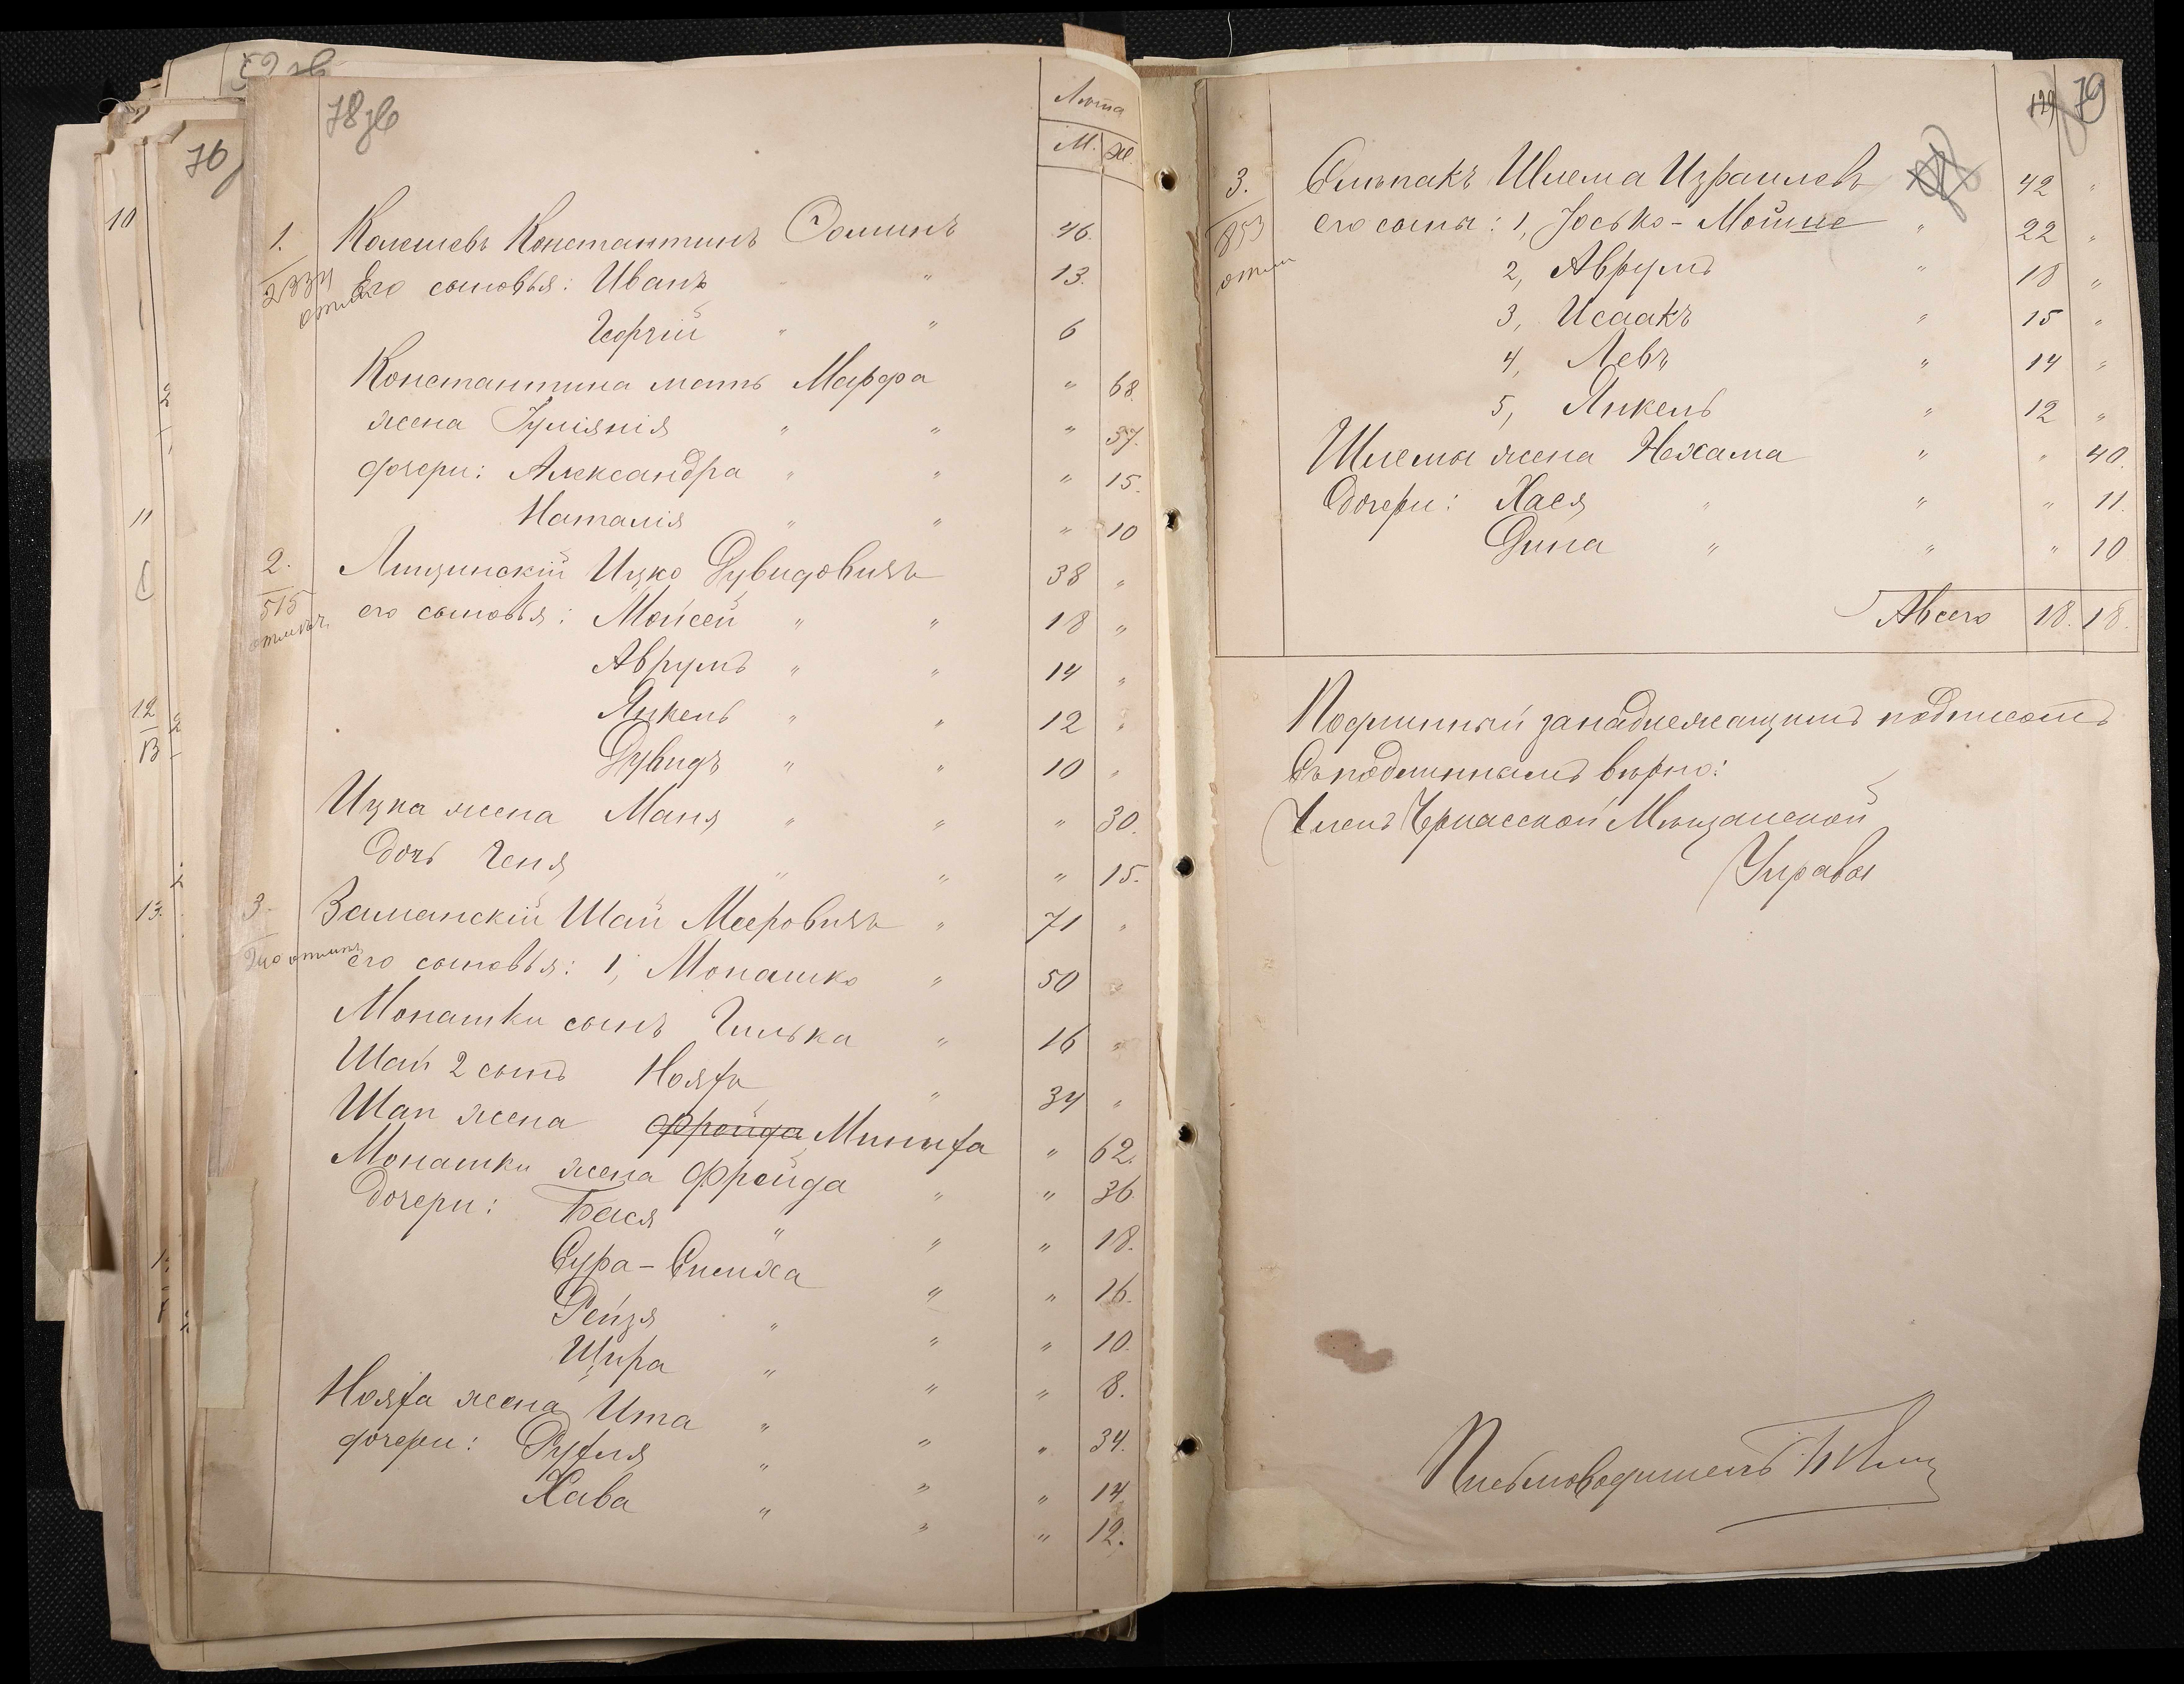 78 зв
Лѣта
М. Ж.
1. Колешевъ Константинъ Ѳоминъ 46.
2834 отмѣч. Его сыновья: Иванъ " 13.
Георгій " " 6
Константина мать Марфа " 68.
жена Іуліянія " " " 37.
дочери: Александра " " " 15.
Наталія " " " 10
2. Липинскій Ицко Дувидовичъ 38 "
515 отмѣч. его сыновья: Мойсей " " 18 "
Аврумъ " " 14 "
Янкель " " 12 "
Дувидъ " " 10 "
Ицка жена Маня " " " 30.
дочь Геня " " " 15.
3. Заманскій Шай Мееровичъ " 71 "
его сыновья: 1, Монашко " 50 "
Монашки сынъ Гилька " 16 "
Шай 2 сынъ Нояхъ " 34 "
Шаи жена Фрейда Миниха " 62.
Монашки жена Фрейда " " 36.
Дочери: Бася " " " 18.
Сура-Симха " " 16.
Рейзя " " " 10.
Шира " " " 8.
Нояха жена Ита " " " 34.
дочери: Рухля " " " 14
Хава " " " 12.
76
10
11
12
13
13.
129 79
3. Ельпакъ Шлема Израилевъ 42 "
853 отмѣч его сыны: 1, Іосько-Мойше " 22 "
2, Аврумъ " 18 "
3, Исаакъ " 15 "
4, Левъ " 14 "
5, Янкель " 12 "
Шлемы жена Нехама " " 40.
Дочери: Хася " " " 11.
Дина " " " 10
А всего 18. 18.
Подлинный за надлежащимъ подписомъ
Съ подлиннымъ вѣрно:
Членъ Черкасской Мѣщанской
Управы
Письмоводитель